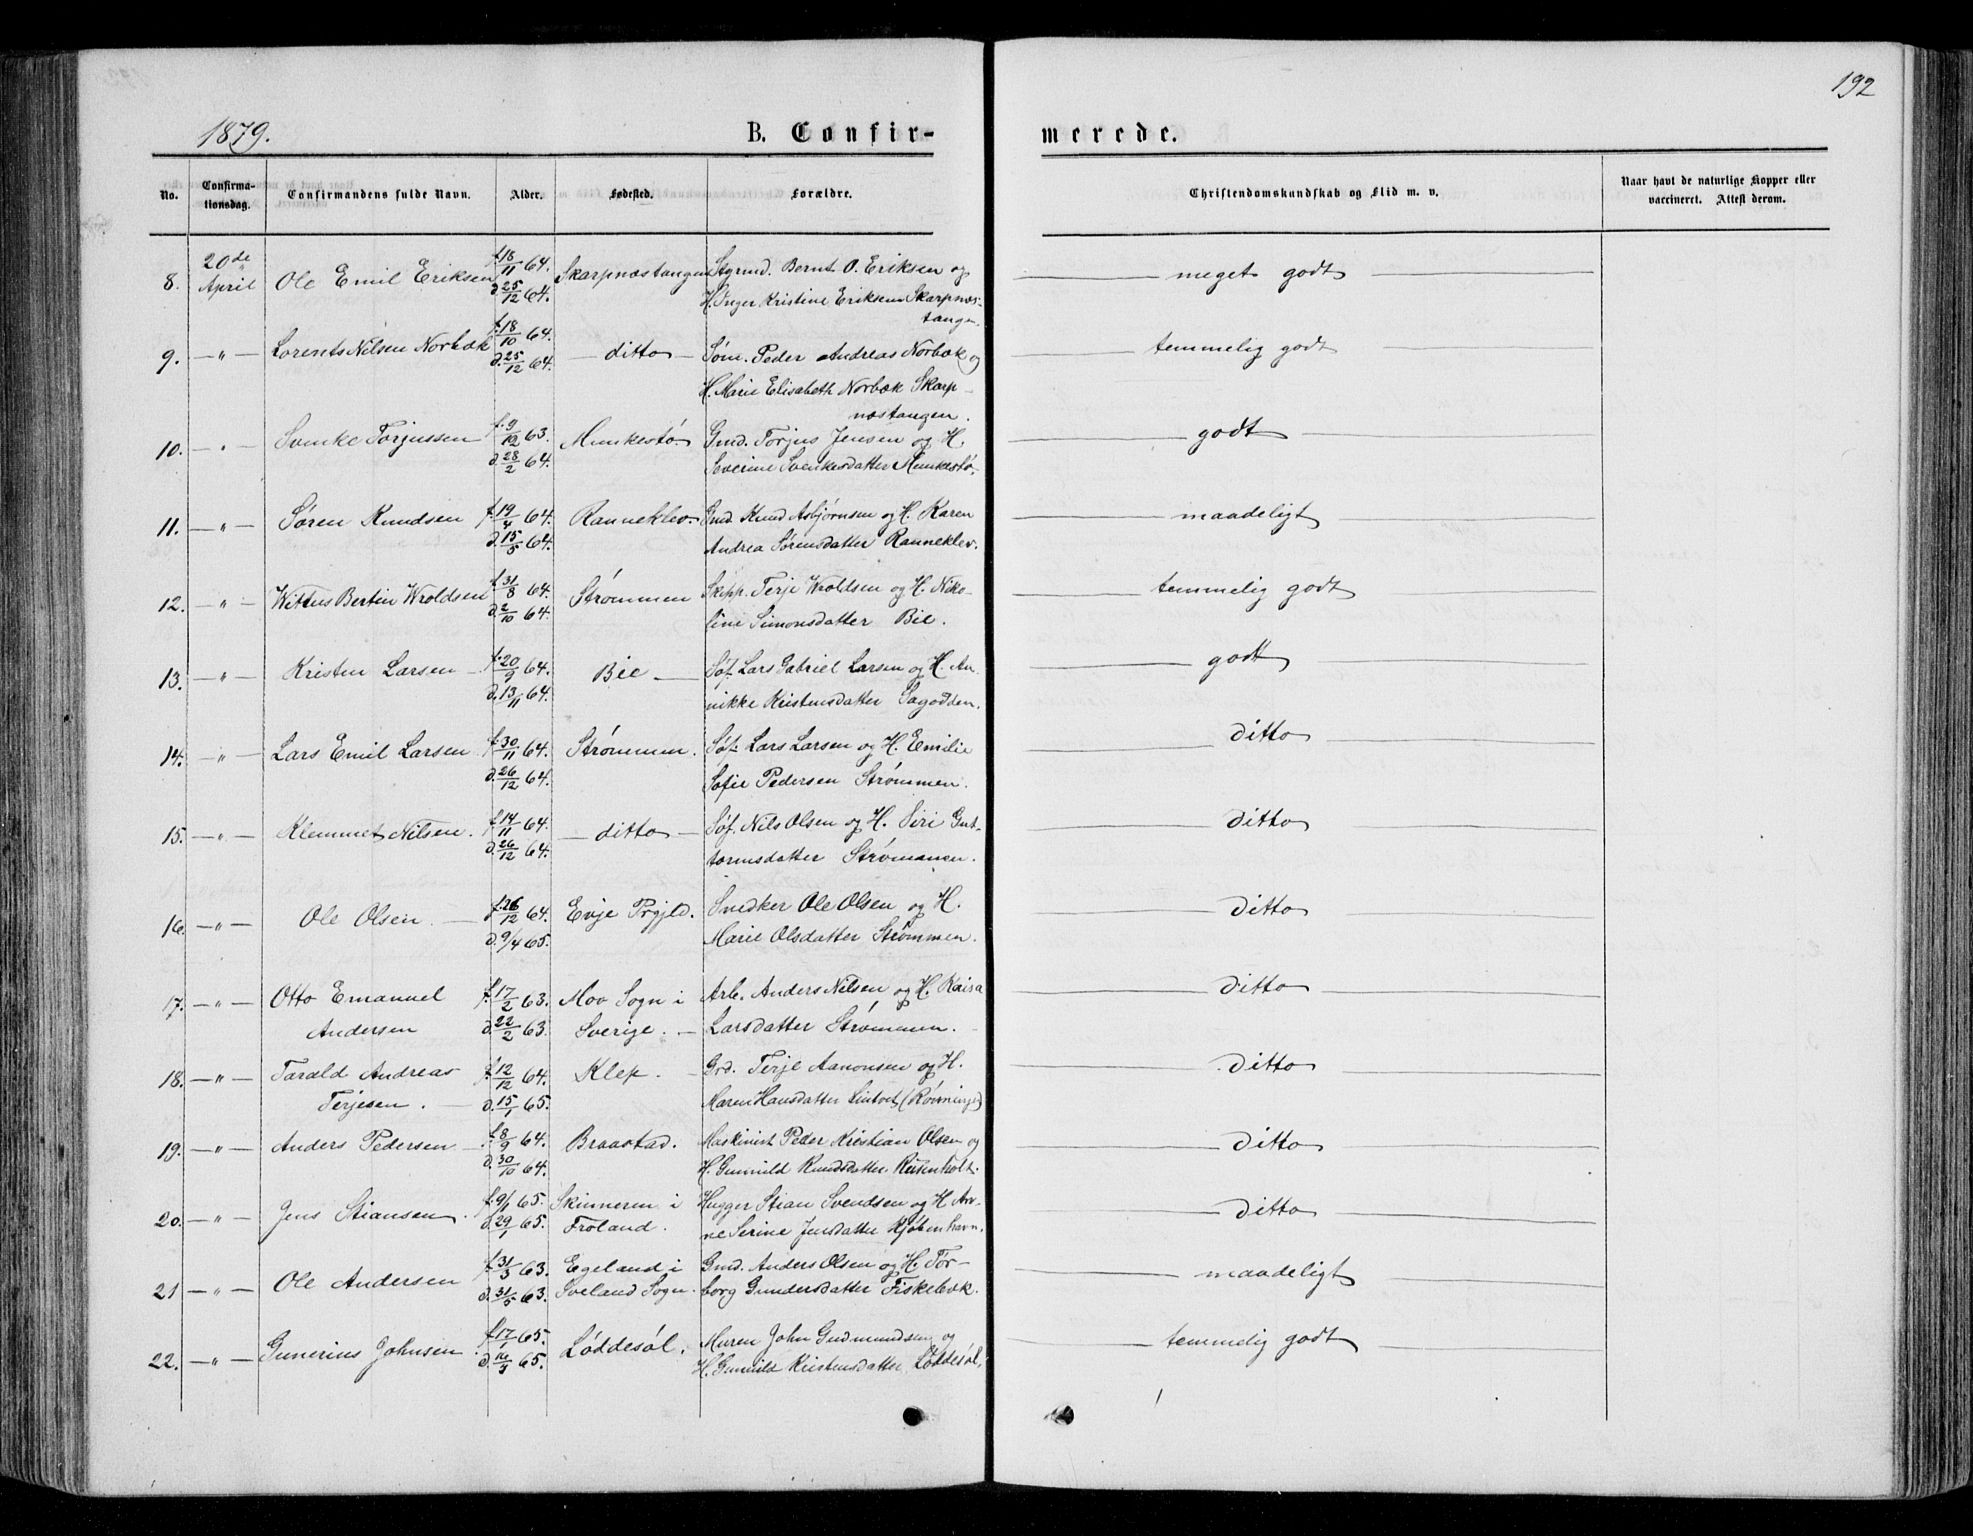 192
1879. B. Confir- merede.
No. Confirma-tionsdag. Confirmandens fulde Navn. Alder. Fødested. Forældre. Christendomskundskab og Flid m. v. Naar havt de naturlige Kopper eller vaccineret. Attest derom.
8. 20de April Ole Emil Eriksen f. 18/11 64. d. 25/12 64. Skarpnæstangen Bernt O. Eriksen og
H. Inger Kristine Eriksen Skarpnæs-
tangen. meget godt
9. —"— Lorents Nilsen Norbæk f. 18/10 64. d. 25/12 64. ditto Søm. Peder Andreas Norbæk og
H. Marie Elisabeth Norbæk Skarp-
næstangen. temmelig godt
10. " Svenke Torjussen f. 9/12 63. d. 28/2 64. Munkestø. Gmd. Torjus Jensen og H.
Severine Svenkesdatter Munkestø. godt
11. —"— Søren Knudsen f. 19/4 64. d. 15/5 64. Ranneklev. Gmd. Knud Asbjørnsen og H. Karen
Andrea Sørensdatter Ranneklev. maadeligt
12. —"— Wittus Bertin Wroldsen f. 31/8 64. d. 2/10 64. Strømmen Skipp. Terje Wroldsen og H. Niko-
line Simonsdatter Bie. temmelig godt
13. —"— Kristen Larsen f. 20/9 64. d. 13/11 64. Bie Søf. Lars Gabriel Larsen og H. An-
nikke Kristensdatter Sagodden. godt
14. —"— Lars Emil Larsen f. 30/11 64. d. 26/12 64. Strømmen. Søf. Lars Larsen og H. Emilie
Sofie Pedersen Strømmen. ditto
15. —"— Klemmet Nilsen. f. 14/11 64. d. 26/12 64. ditto Søf. Nils Olsen og H. Siri Gut-
tormsdatter Strømmen. ditto
16. —"— Ole Olsen. f. 26/12 64. d. 9/4 65. Evje Prgjld. Snedker Ole Olsen og H.
Marie Olsdatter Strømmen. ditto
17. —"— Otto Emanuel Andersen f. 17/2 63. d. 22/2 63. Moo Sogn i Sverige. Arb. Anders Nilsen og H. Kaisa
Larsdatter Strømmen. ditto
18. —"— Tarald Andreas Terjesen. f. 12/12 64. d. 15/1 65. Klep. Grd. Terje Aanonsen og H.
Maren Hansdatter ditto
19. —"— Anders Pedersen f. 8/9 64. d. 30/10 64. Braastad. Maskinist Peder Kristian Olsen og
H. Gunnild Knudsdatter Reisenholt. ditto
20. —"— Jens Stiansen f. 9/1 65. d. 29/1 65. i Froland. Hugger Stian Svendsen og H. An-
ne Serine Jensdatter Kjøbenhavn. ditto
21 —"— Ole Andersen f. 31/3 63. d. 31/5 63. Egeland i Søeland Sogn. Gmd. Anders Olsen og H. Tor-
borg Gundersdatter Fiskebæk. maadeligt
22. —"— Gunerius Johnsen f. 17/1 65. d. 65. Løddesøl. Murer John Gudmundsen og
H. Gunnild Kristensdatter Løddesøl. temmelig godt